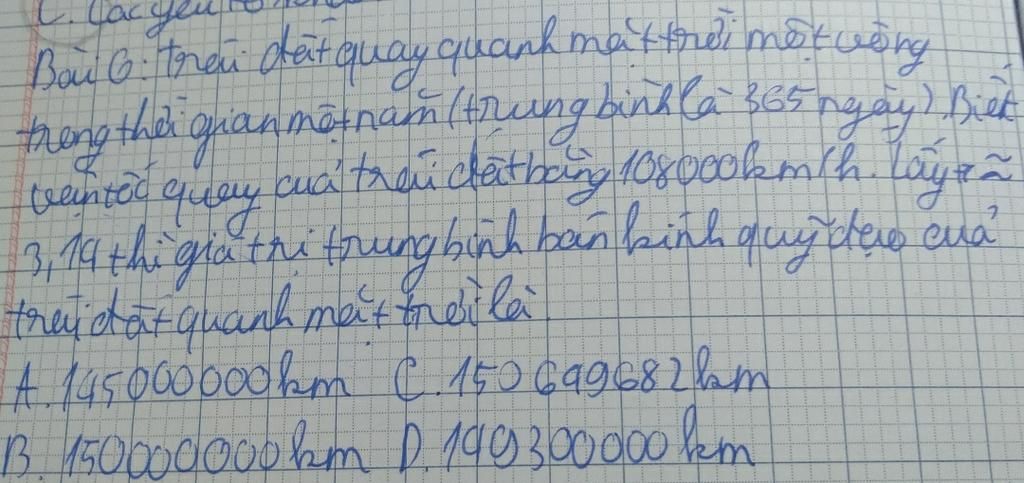 C. Các yếu tố
Bài 6: trái đất quay quanh mặt trời một vòng
trong thời gian một năm (trung bình là 365 ngày). Biết
vận tốc quay của trái đất bằng 108000km/h. lấy π ≈
3,14 thì giá trị trung bình bán kính quỹ đạo của
trái đất quanh mặt trời là
A. 145000000km C. 150649682km
B. 150000000km D. 149300000km